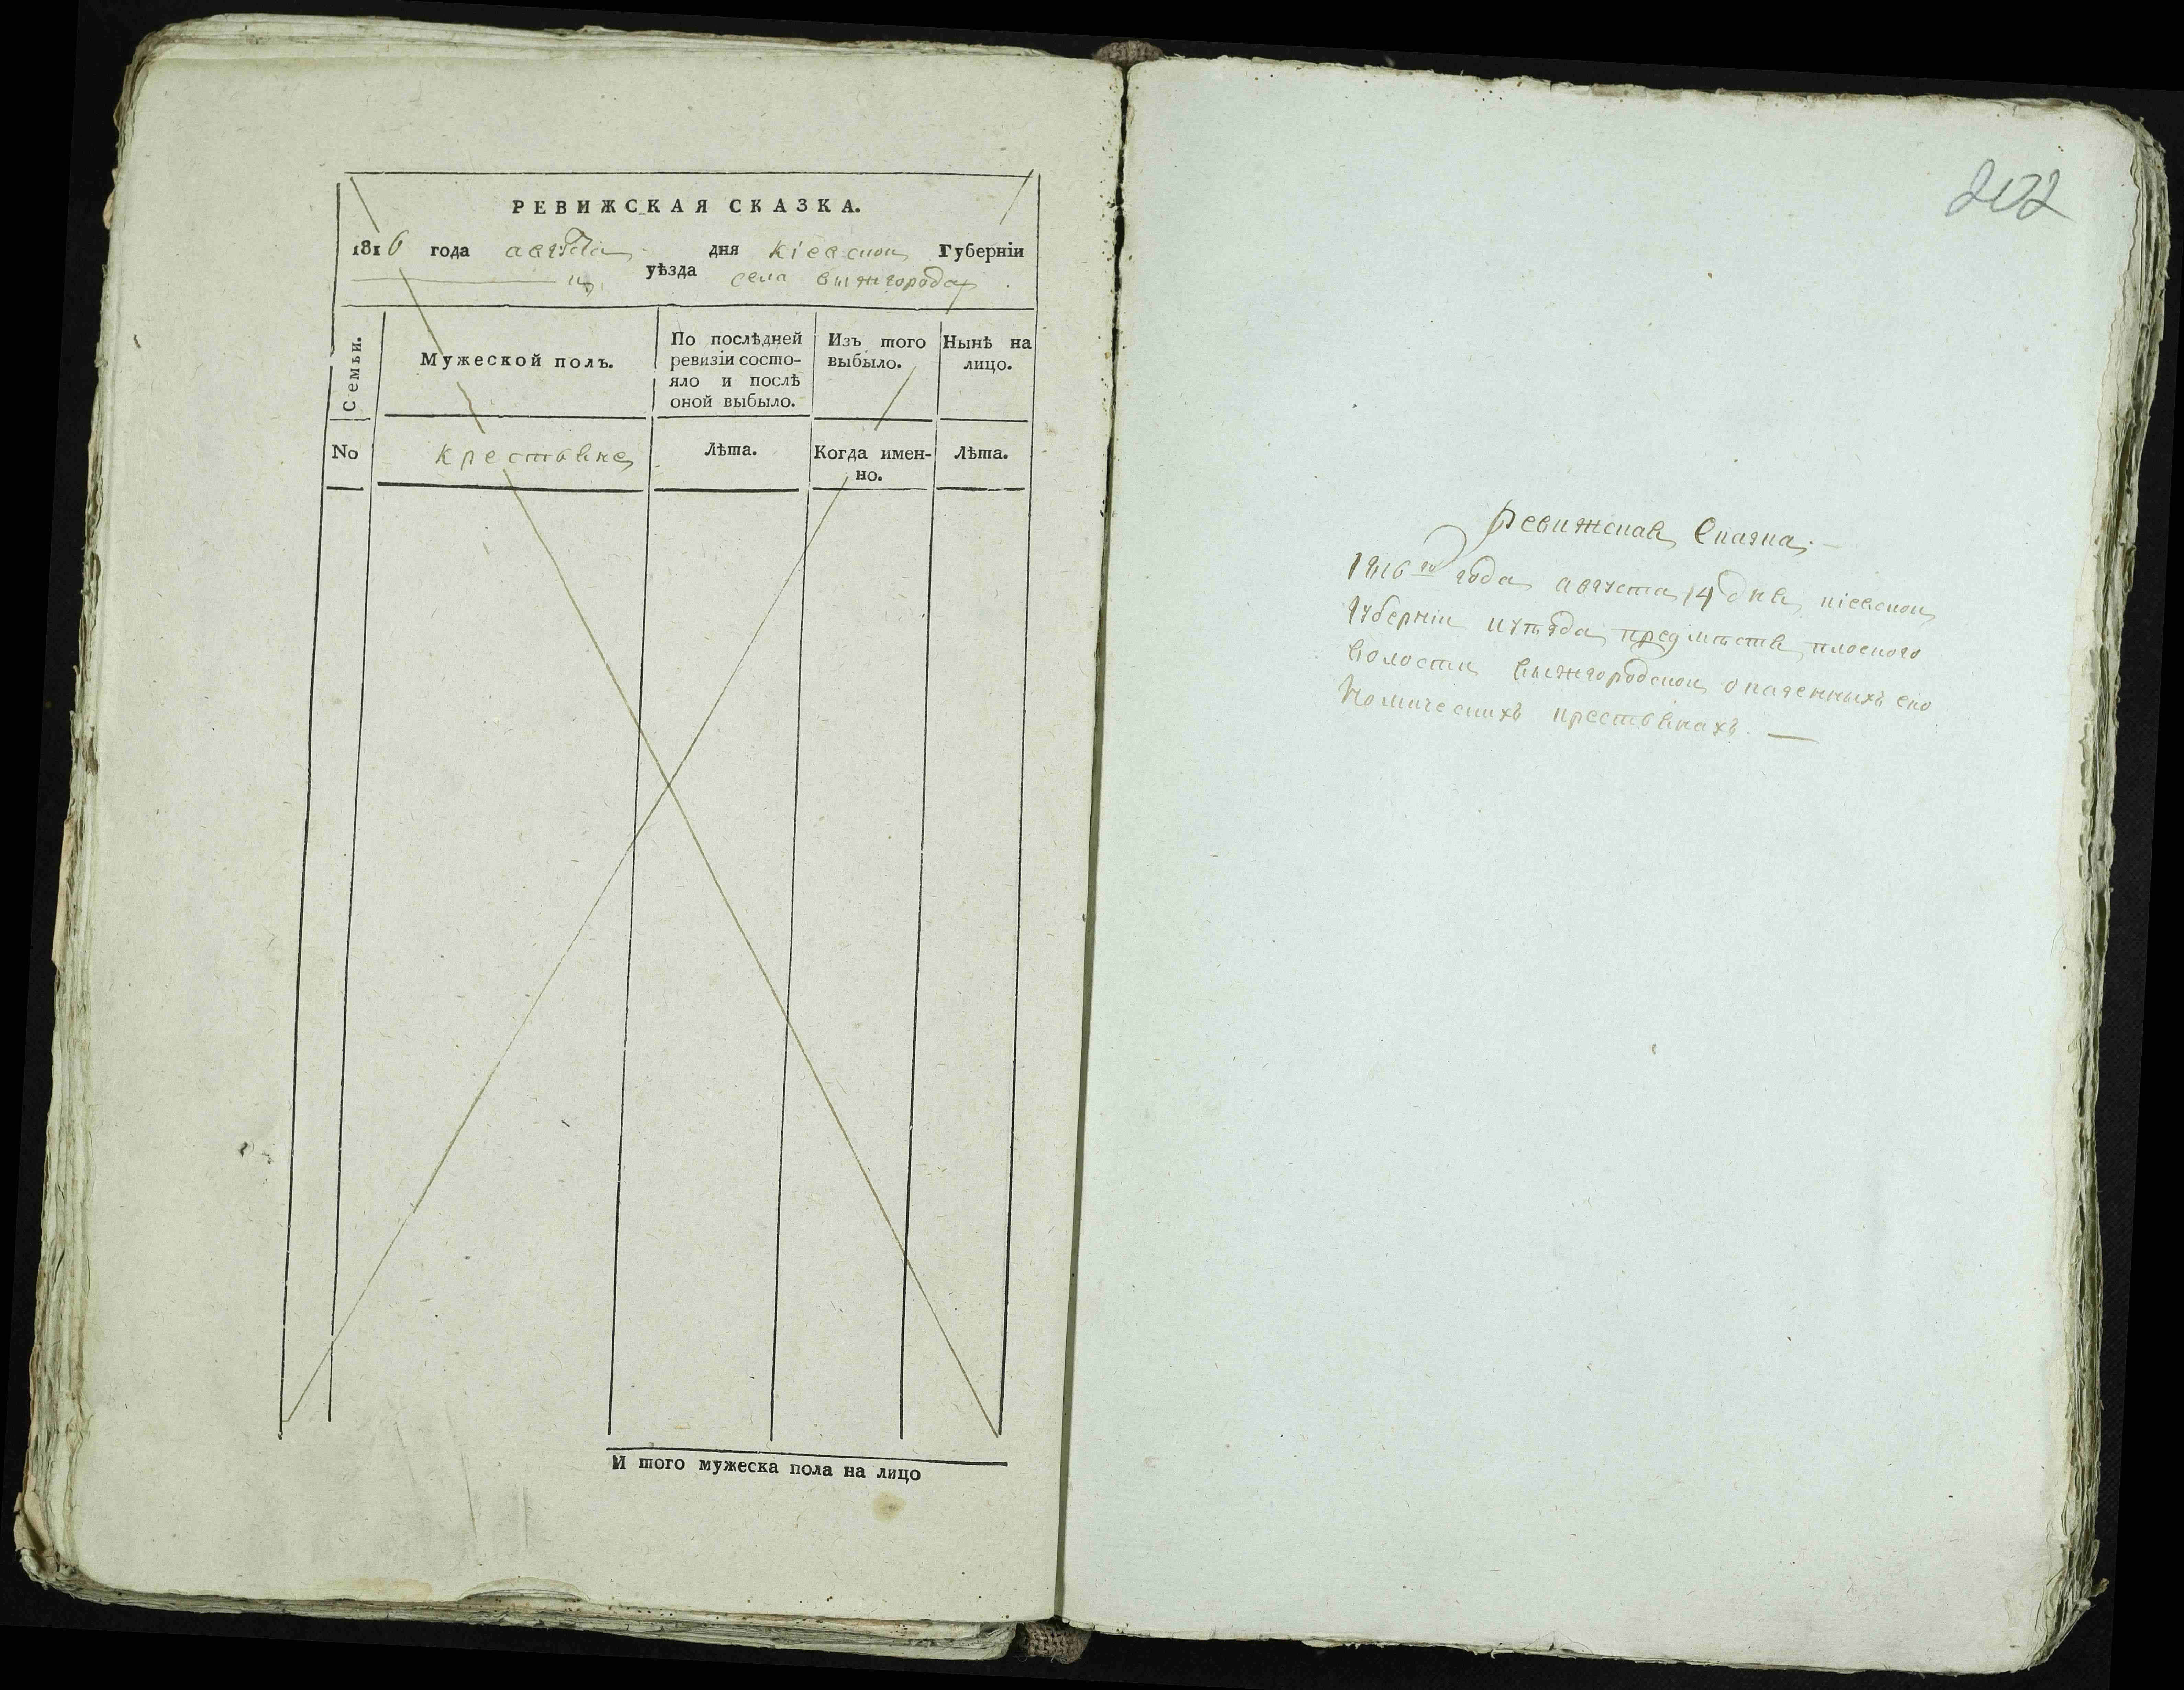 РЕВИЖСКАЯ СКАЗКА.
1816 года августа дня кіевской Губерніи
уѣзда села вышгорода
Семьи.
Мужеской полъ.
По послѣдней
ревизіи состо-
яло и послѣ
оной выбыло.
Изъ того
выбыло.
Нынѣ на
лицо.
No
крестьяне
Лѣта.
Когда имен-
но.
Лѣта.
И того мужеска пола на лицо
Ревижская Сказка;—
1816го года августа 14 дня, кіевской
губерніи и уѣзда, предмѣстя плоского
волости вышгородской о казенныхъ еко
номическихъ крестьянахъ. —